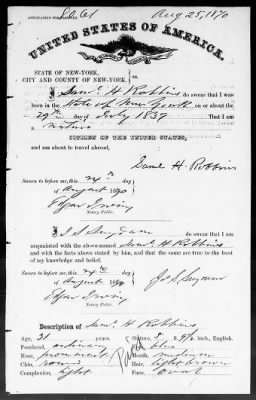 Aug 25, 1870
UNITED STATES OF AMERICA.
STATE OF NEW-YORK,
CITY AND COUNTY OF NEW-YORK.
I Saml H Robbins do swear that I was
born in the State of New York on or about the
29th day of July 1839 That I am
a native
CITIZEN OF THE UNITED STATES,
and am about to travel abroad.
Saml H. Robbins
Sworn to before me, this 24th
day of August 1870
Notary Public.
I do swear that I am
acquainted with the above-named Saml H Robbins
and with the facts above stated by him, and that the same are true to the best
of my knowledge and belief.
Sworn to before me, this 24th
day of August 1870
Notary Public.
Description of Saml H Robbins
Age, 31 years.
Stature, 5 ft. inch, English.
Forehead, ordinary
Eyes, blue
Nose, prominent
Mouth, medium
Chin, round
Hair, light brown
Complexion, light
Face, oval